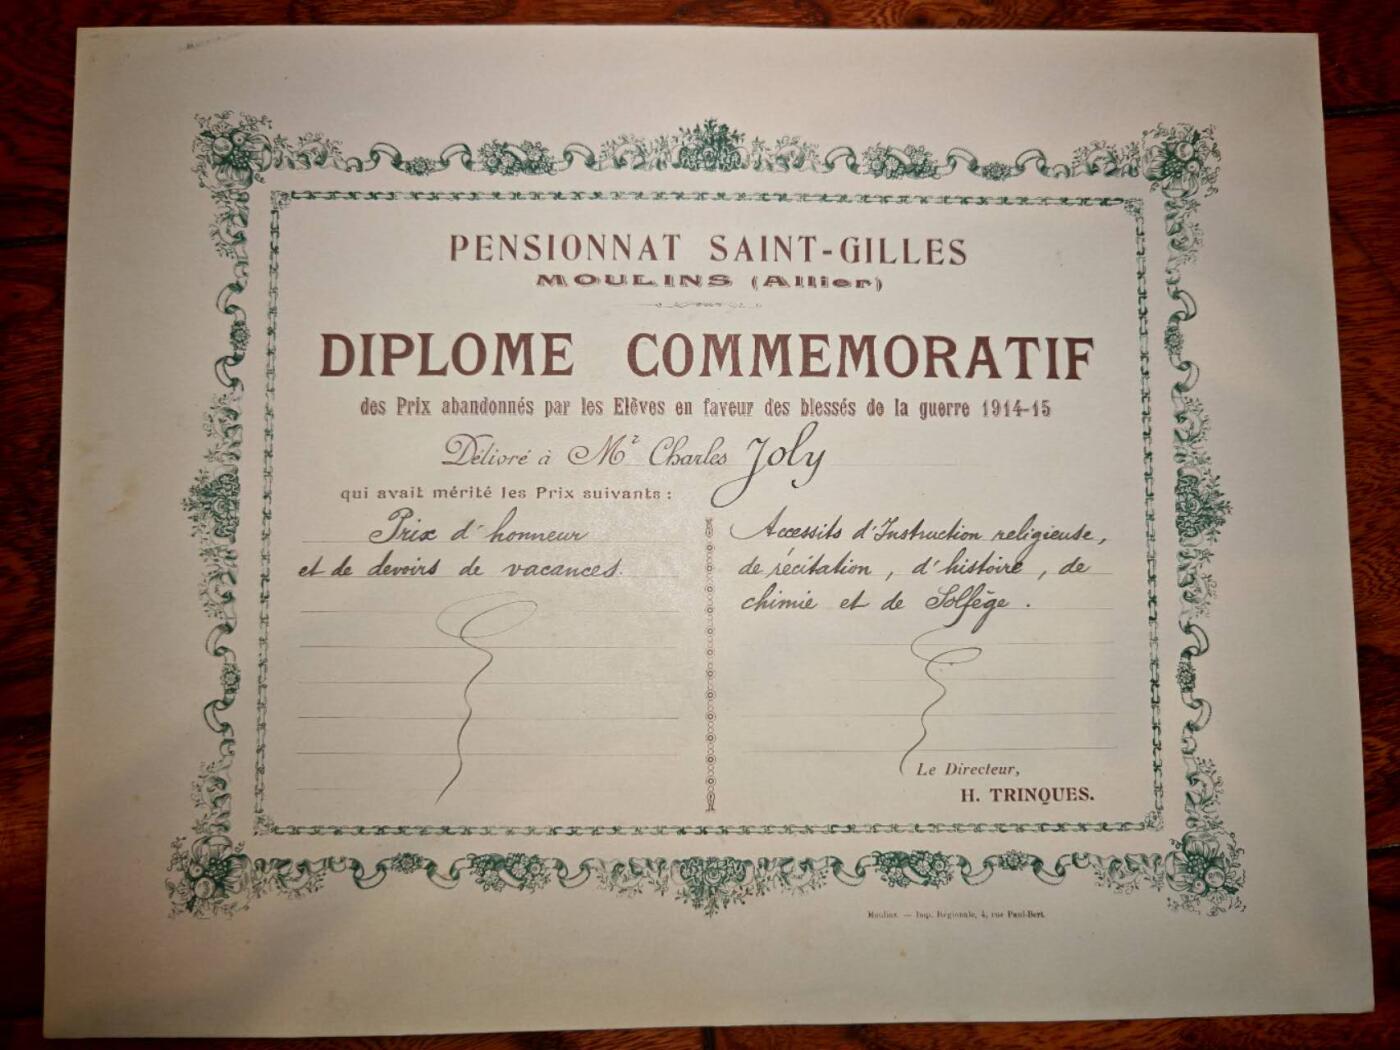 PENSIONNAT SAINT-GILLES
MOULINS (Allier)
DIPLOME COMMEMORATIF
des Prix abandonnés par les Elèves en faveur des blessés de la guerre 1914-15
Délivré à Mr Charles Joly
qui avait mérité les Prix suivants :
Prix d'honneur
et de devoirs de vacances.
Accessits d'Instruction religieuse,
de récitation, d'histoire, de
chimie et de Solfège.
Le Directeur,
H. TRINQUES.
Moulins. — Imp. Régionale, 4, rue Paul-Bert.